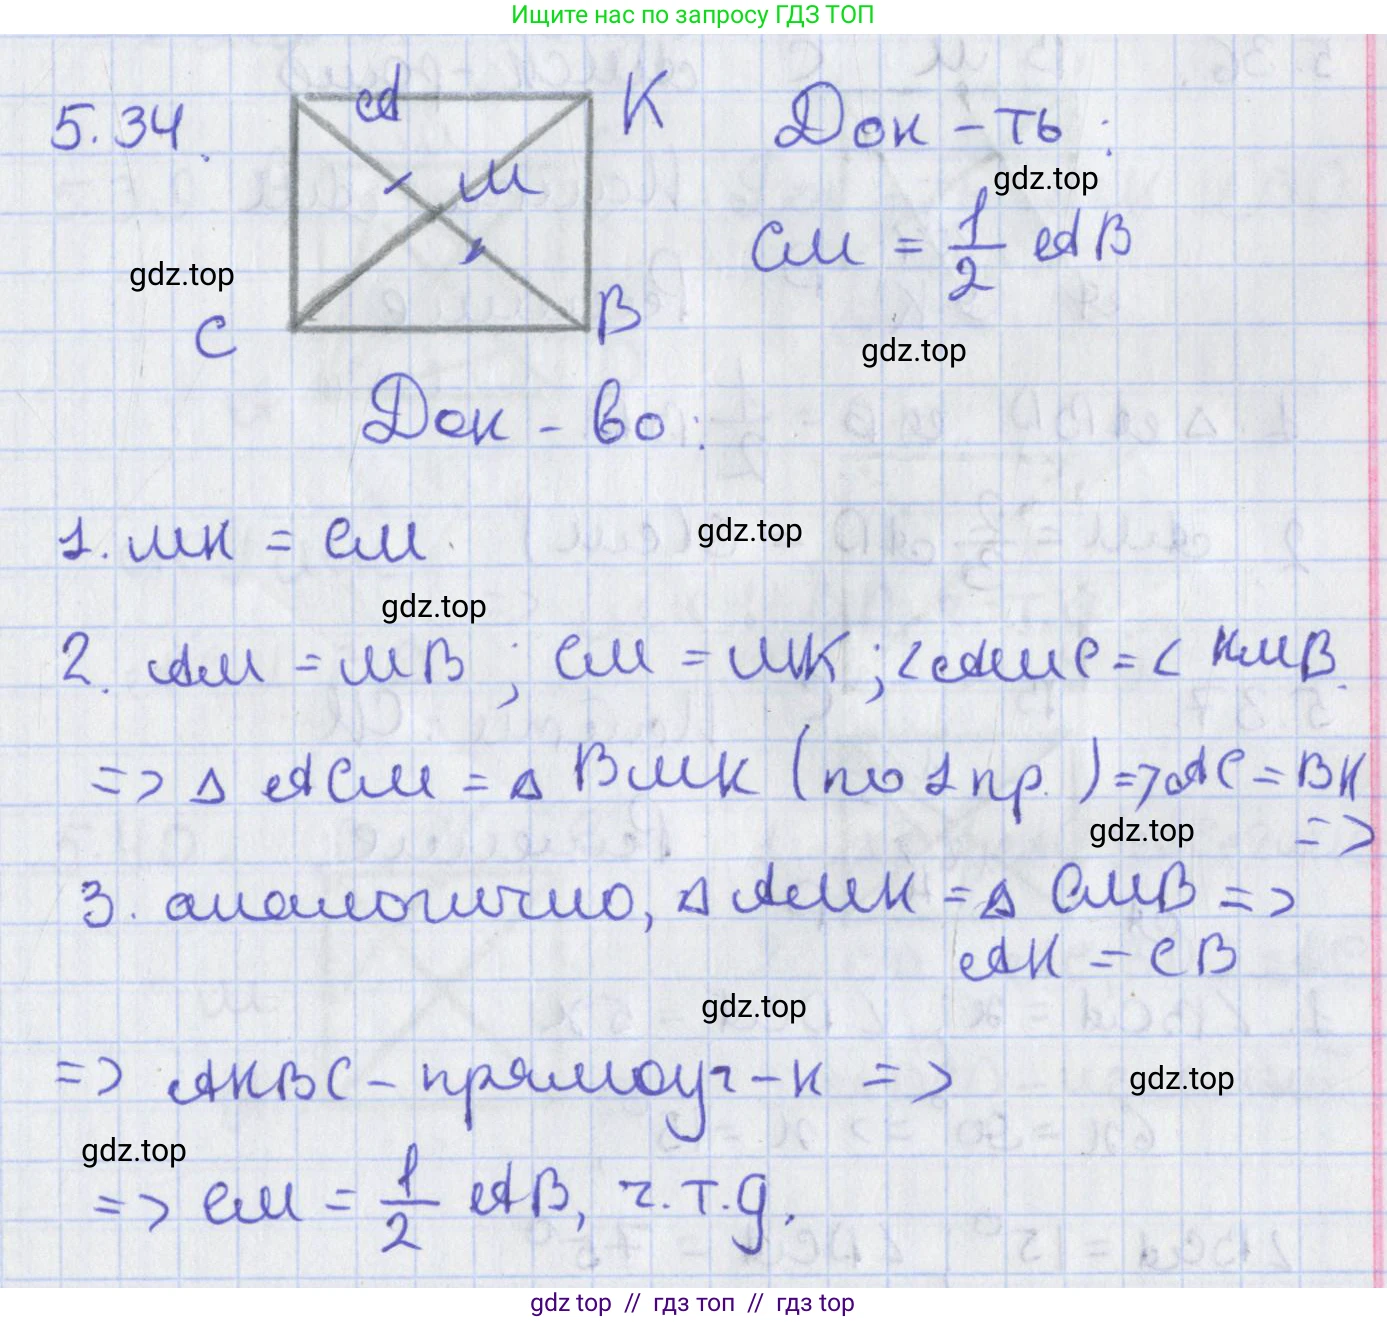 Ищите нас по запросу ГДЗ ТОП
5.34.
А К
М
С В
Док-ть:
gdz.top
СМ = 1/2 АВ
gdz.top
gdz.top
Док-во:
1. МК = СМ.
gdz.top
gdz.top
2. АМ = МВ; СМ = МК; <АМС = < КМВ.
=> Δ АСМ = Δ ВМК (по 1 пр.) => АС = ВК
gdz.top
=>
3. аналогично, Δ АМК = Δ СМВ =>
АК = СВ
gdz.top
=> АКВС - прямоуг-к =>
gdz.top
gdz.top
=> СМ = 1/2 АВ, ч.т.д.
gdz top // гдз топ // гдз top